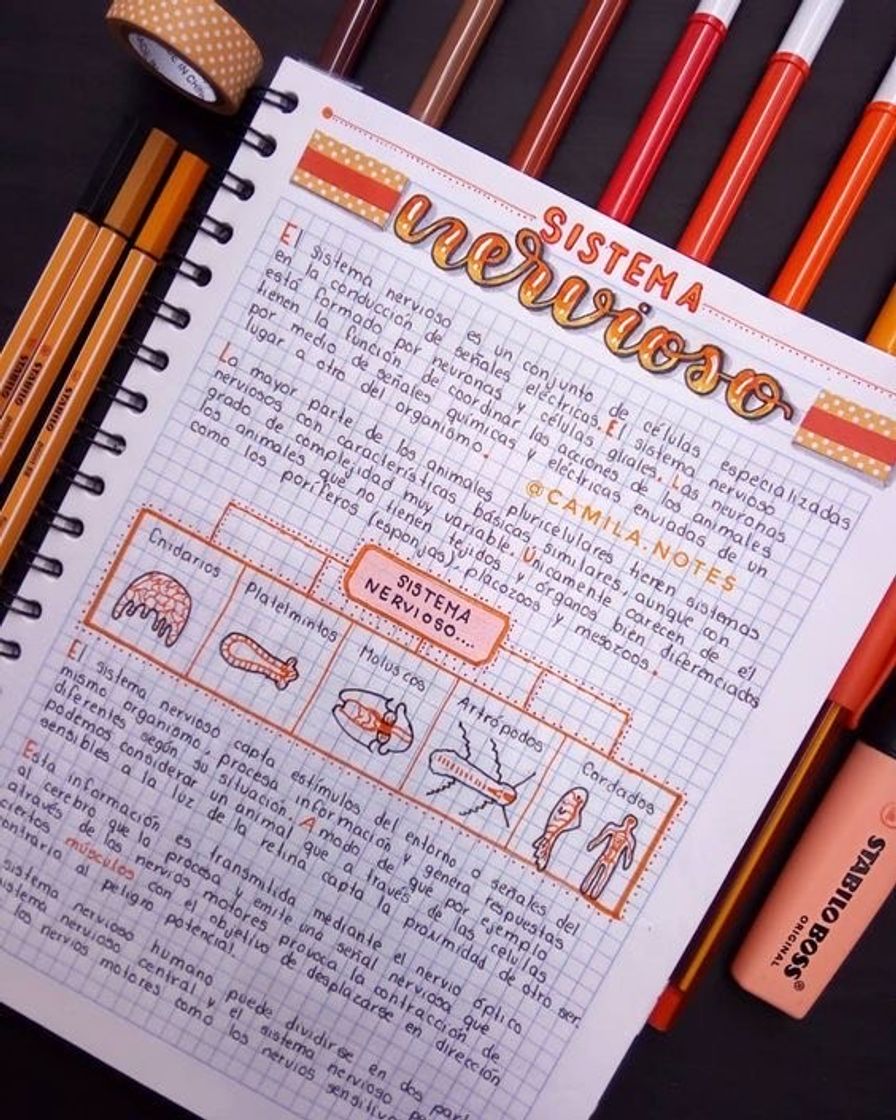 SISTEMA
nervioso
El sistema nervioso es un conjunto de células especializadas
en la conducción de señales eléctricas. El sistema nervioso
está formado por neuronas y células gliales. Las neuronas
tienen la función de coordinar las acciones de los animales
por medio de señales químicas y eléctricas enviadas de un
lugar a otro del organismo.
@CAMILA.NOTES
La mayor parte de los animales pluricelulares tienen sistemas
nerviosos con características básicas similares, aunque con
grado de complejidad muy variable. Únicamente carecen de él
los animales que no tienen tejidos y órganos bien diferenciados
como los poríferos (esponjas), placozoos y mesozoos.
SISTEMA
NERVIOSO....
Cnidarios
Platelmintos
Moluscos
Artrópodos
Cordados
El sistema nervioso capta estímulos del entorno o señales del
mismo organismo, procesa información y genera respuestas
diferentes según su situación. A modo de ejemplo
podemos considerar un animal que a través de las células
sensibles a la luz de la retina capta la proximidad de otro ser.
Esta información es transmitida mediante el nervio óptico
al cerebro que la procesa y emite una señal nerviosa que
através de los nervios motores provoca la contracción de
ciertos músculos con el objetivo de desplazarse en dirección
contraria al peligro potencial.
sistema nervioso humano puede dividirse en dos
nervioso central y el sistema nervioso
los nervios motores como los nervios
STABILO
STABILO
STABILO BOSS
ORIGINAL